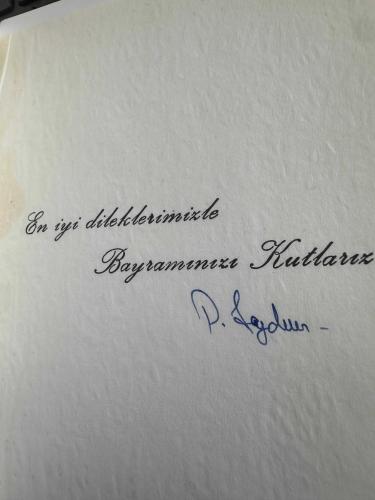 En iyi dileklerimizle
Bayramınızı Kutlarız